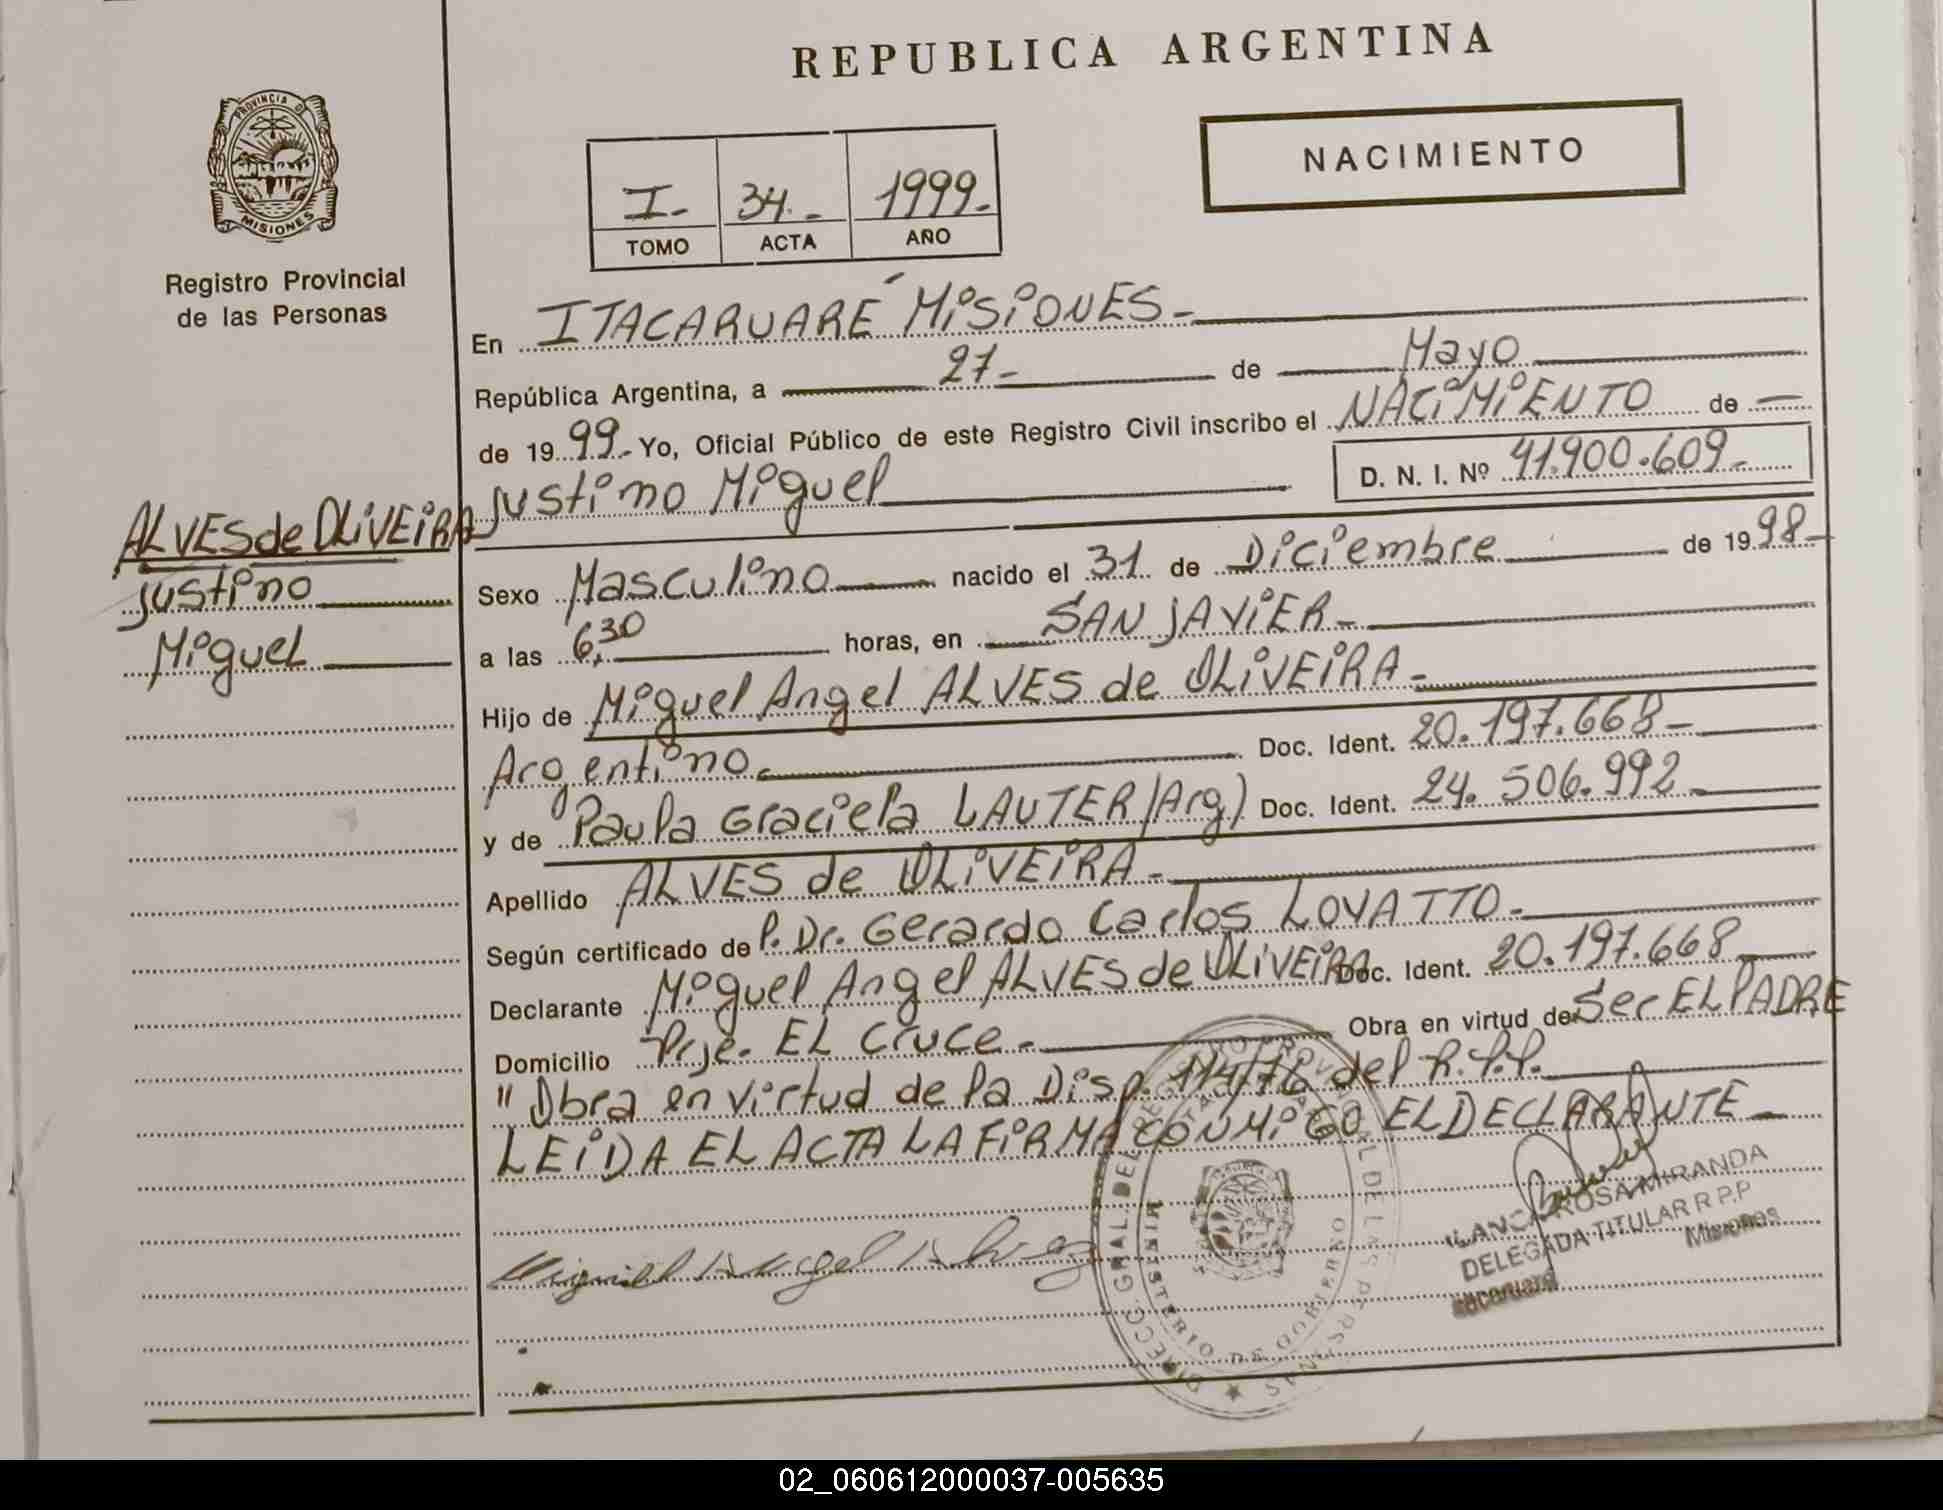 REPUBLICA ARGENTINA
PROVINCIA D
MISIONES
Registro Provincial
de las Personas
I.- 34.- 1999.-
TOMO ACTA AÑO
NACIMIENTO
En ITACARUARÉ MISIONES.-
República Argentina, a 27.- de Mayo
de 1999.- Yo, Oficial Público de este Registro Civil inscribo el NACIMIENTO de —
D. N. I. Nº 41.900.609.-
Justino Miguel
ALVES de OLIVEIRA
Justino
Miguel
Sexo Masculino nacido el 31 de Diciembre de 1998.-
a las 6,30 horas, en SAN JAVIER.-
Hijo de Miguel Angel ALVES de OLIVEIRA.-
Argentino.- Doc. Ident. 20.197.668.-
y de Paula Graciela LAUTER (Arg) Doc. Ident. 24.506.992.-
Apellido ALVES de OLIVEIRA.-
Según certificado de P. Dr. Gerardo Carlos LOVATTO.-
Declarante Miguel Angel ALVES de OLIVEIRA Doc. Ident. 20.197.668.-
Domicilio Prje. EL Cruce.- Obra en virtud de Ser EL PADRE
"Obra en virtud de la Disp. 114/76 del R.P.P.
LEIDA EL ACTA LA FIRMA CONMIGO EL DECLARANTE
Miguel Angel Alvez
ROSA MIRANDA
DELEGADA TITULAR R P P
Misiones
Itacaruaré
DIRECC. GRAL. DEL REGISTRO PROVINCIAL DE LAS PERSONAS
MINISTERIO DE GOBIERNO
02_060612000037-005635